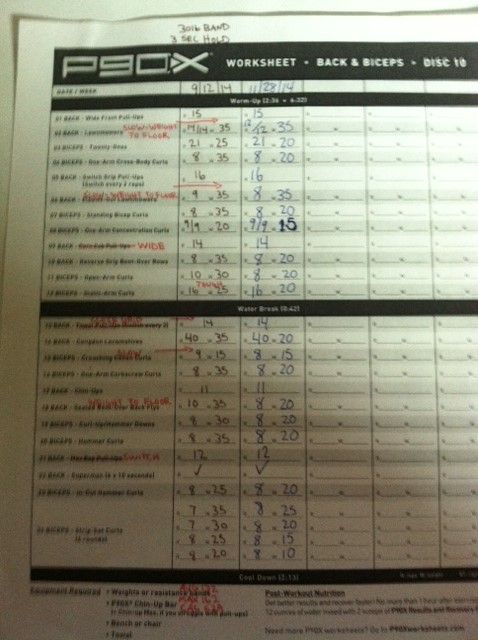 30lb BAND
3 SEC HOLD
P90X WORKSHEET • BACK & BICEPS • DISC 10
DATE / WEEK 9/12/14 11/28/14
Warm-Up (2:36 - 6:32)
01 BACK - Wide Front Pull-Ups 15 15
SLOW-WEIGHT TO FLOOR
02 BACK - Lawnmowers 14/14 35 12/12 35
03 BICEPS - Twenty-Ones 21 25 21 20
04 BICEPS - One-Arm Cross-Body Curls 8 35 8 20
05 BACK - Switch Grip Pull-Ups 16 16
(switch every 2 reps)
SLOW-WEIGHT TO FLOOR
06 BACK - Elbows-Out Lawnmowers 9 35 8 35
07 BICEPS - Standing Bicep Curls 8 35 8 20
08 BICEPS - One-Arm Concentration Curls 9/9 20 9/9 15
09 BACK - Corn Cob Pull-Ups WIDE 14 14
10 BACK - Reverse Grip Bent-Over Rows 8 35 8 20
11 BICEPS - Open-Arm Curls 10 30 8 20
TOUGH
12 BICEPS - Static-Arm Curls 16 25 16 20
Water Break (0:42)
CLOSE GRIP
13 BACK - Towel Pull-Ups (switch every 2) 14 14
14 BACK - Congdon Locomotives 40 35 40 20
SLOW
15 BICEPS - Crouching Cohen Curls 9 15 8 15
16 BICEPS - One-Arm Corkscrew Curls 8 35 8 20
17 BACK - Chin-Ups 11 11
WEIGHT TO FLOOR
18 BACK - Seated Bent-Over Back Flys 10 35 8 20
19 BICEPS - Curl-Up/Hammer Downs 8 30 8 20
20 BICEPS - Hammer Curls 8 35 8 20
21 BACK - Max Rep Pull-Ups SWITCH 12 12
22 BACK - Superman (6 x 10 seconds) ✓ ✓
23 BICEPS - In-Out Hammer Curls 8 25 8 20
7 35 8 25
24 BICEPS - Strip-Set Curls 7 30 8 20
(4 rounds) 8 25 8 15
8 20 8 10
Cool Down (2:13)
Equipment Required • Weights or resistance bands
• P90X Chin-Up Bar
• Bench or chair
• Towel
Post-Workout Nutrition
Get better results and recover faster! No more than 1 hour after exercise
12 ounces of water mixed with 2 scoops of P90X Results and Recovery
Need more P90X worksheets? Go to P90Xworksheets.com.